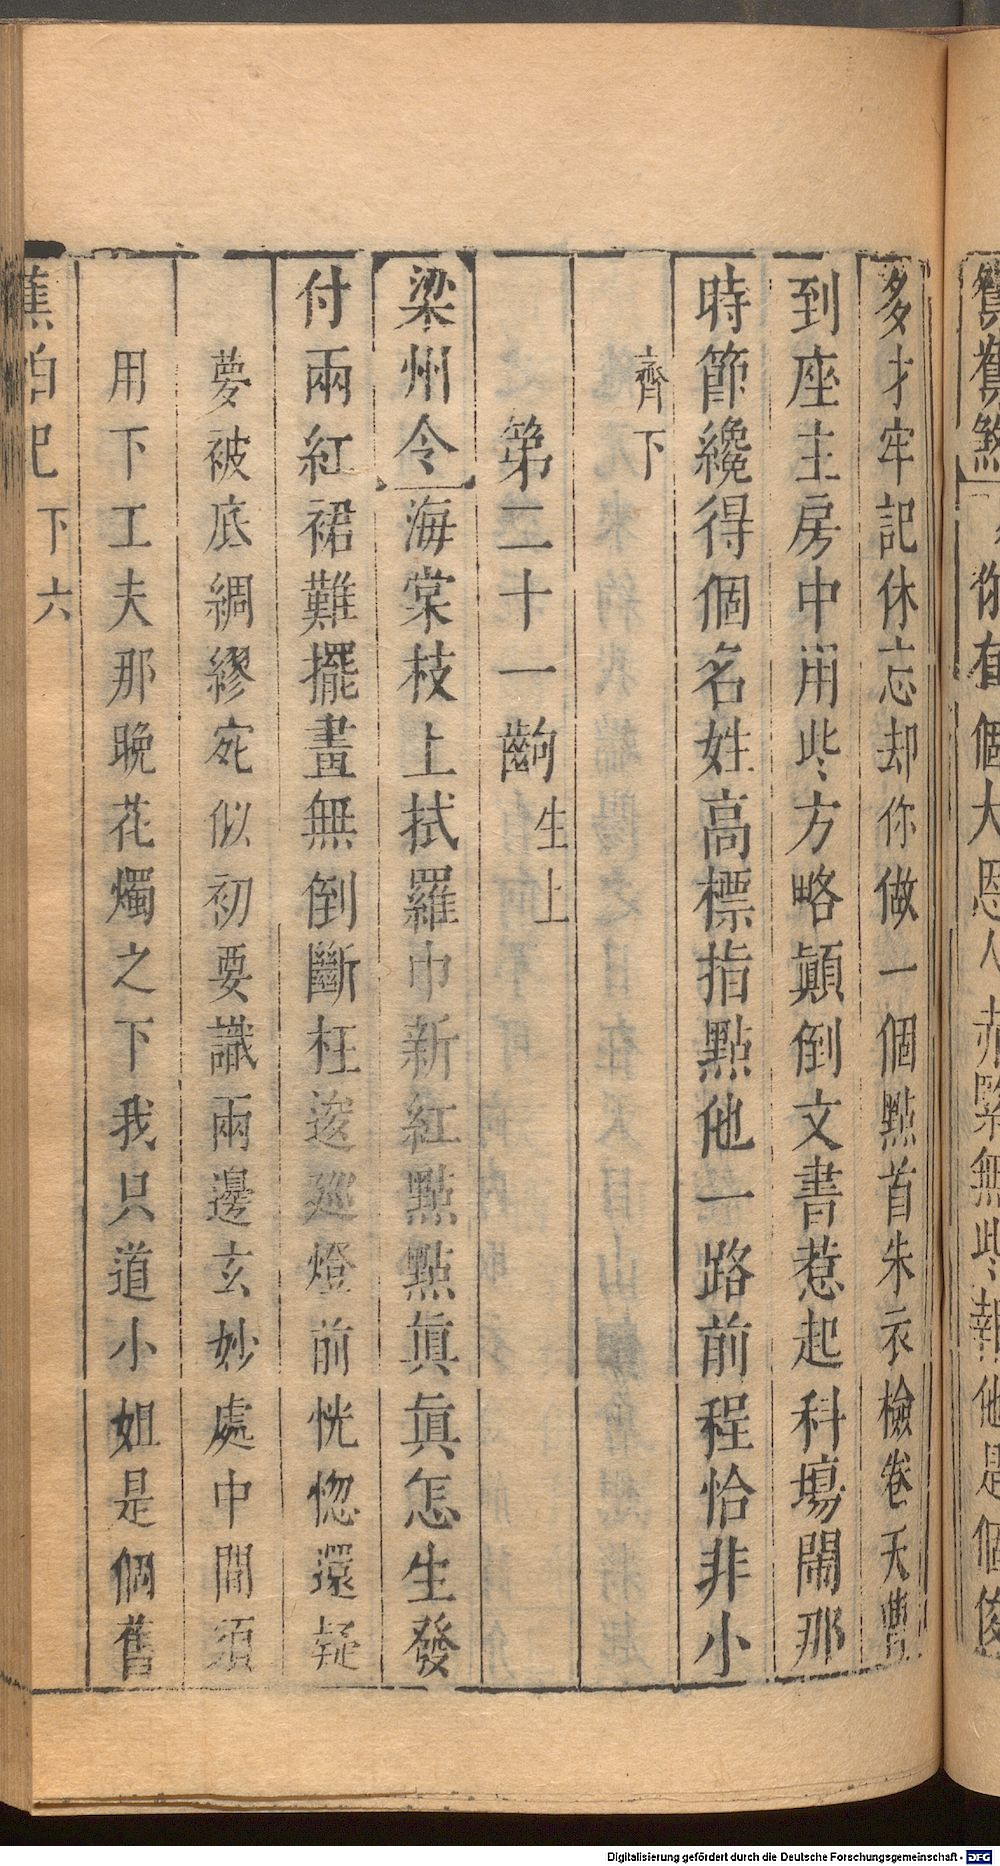 鴛鴦煞你有個大恩人赤緊無些報他是個俊
多才牢記休忘却你做一個點首朱衣檢卷天曹
到座主房中用些方略顛倒文書惹起科場鬧那
時節纔得個名姓高標指點他一路前程恰非小
齊下
第二十一齣生上
梁州令海棠枝上拭羅巾新紅點點真真怎生發
付兩紅裙難擺畫無倒斷枉逡巡燈前恍惚還疑
夢被底綢繆宛似初要識兩邊玄妙處中間須
用下工夫那晚花燭之下我只道小姐是個舊
蕉帕記 下 六
Digitalisierung gefördert durch die Deutsche Forschungsgemeinschaft - DFG